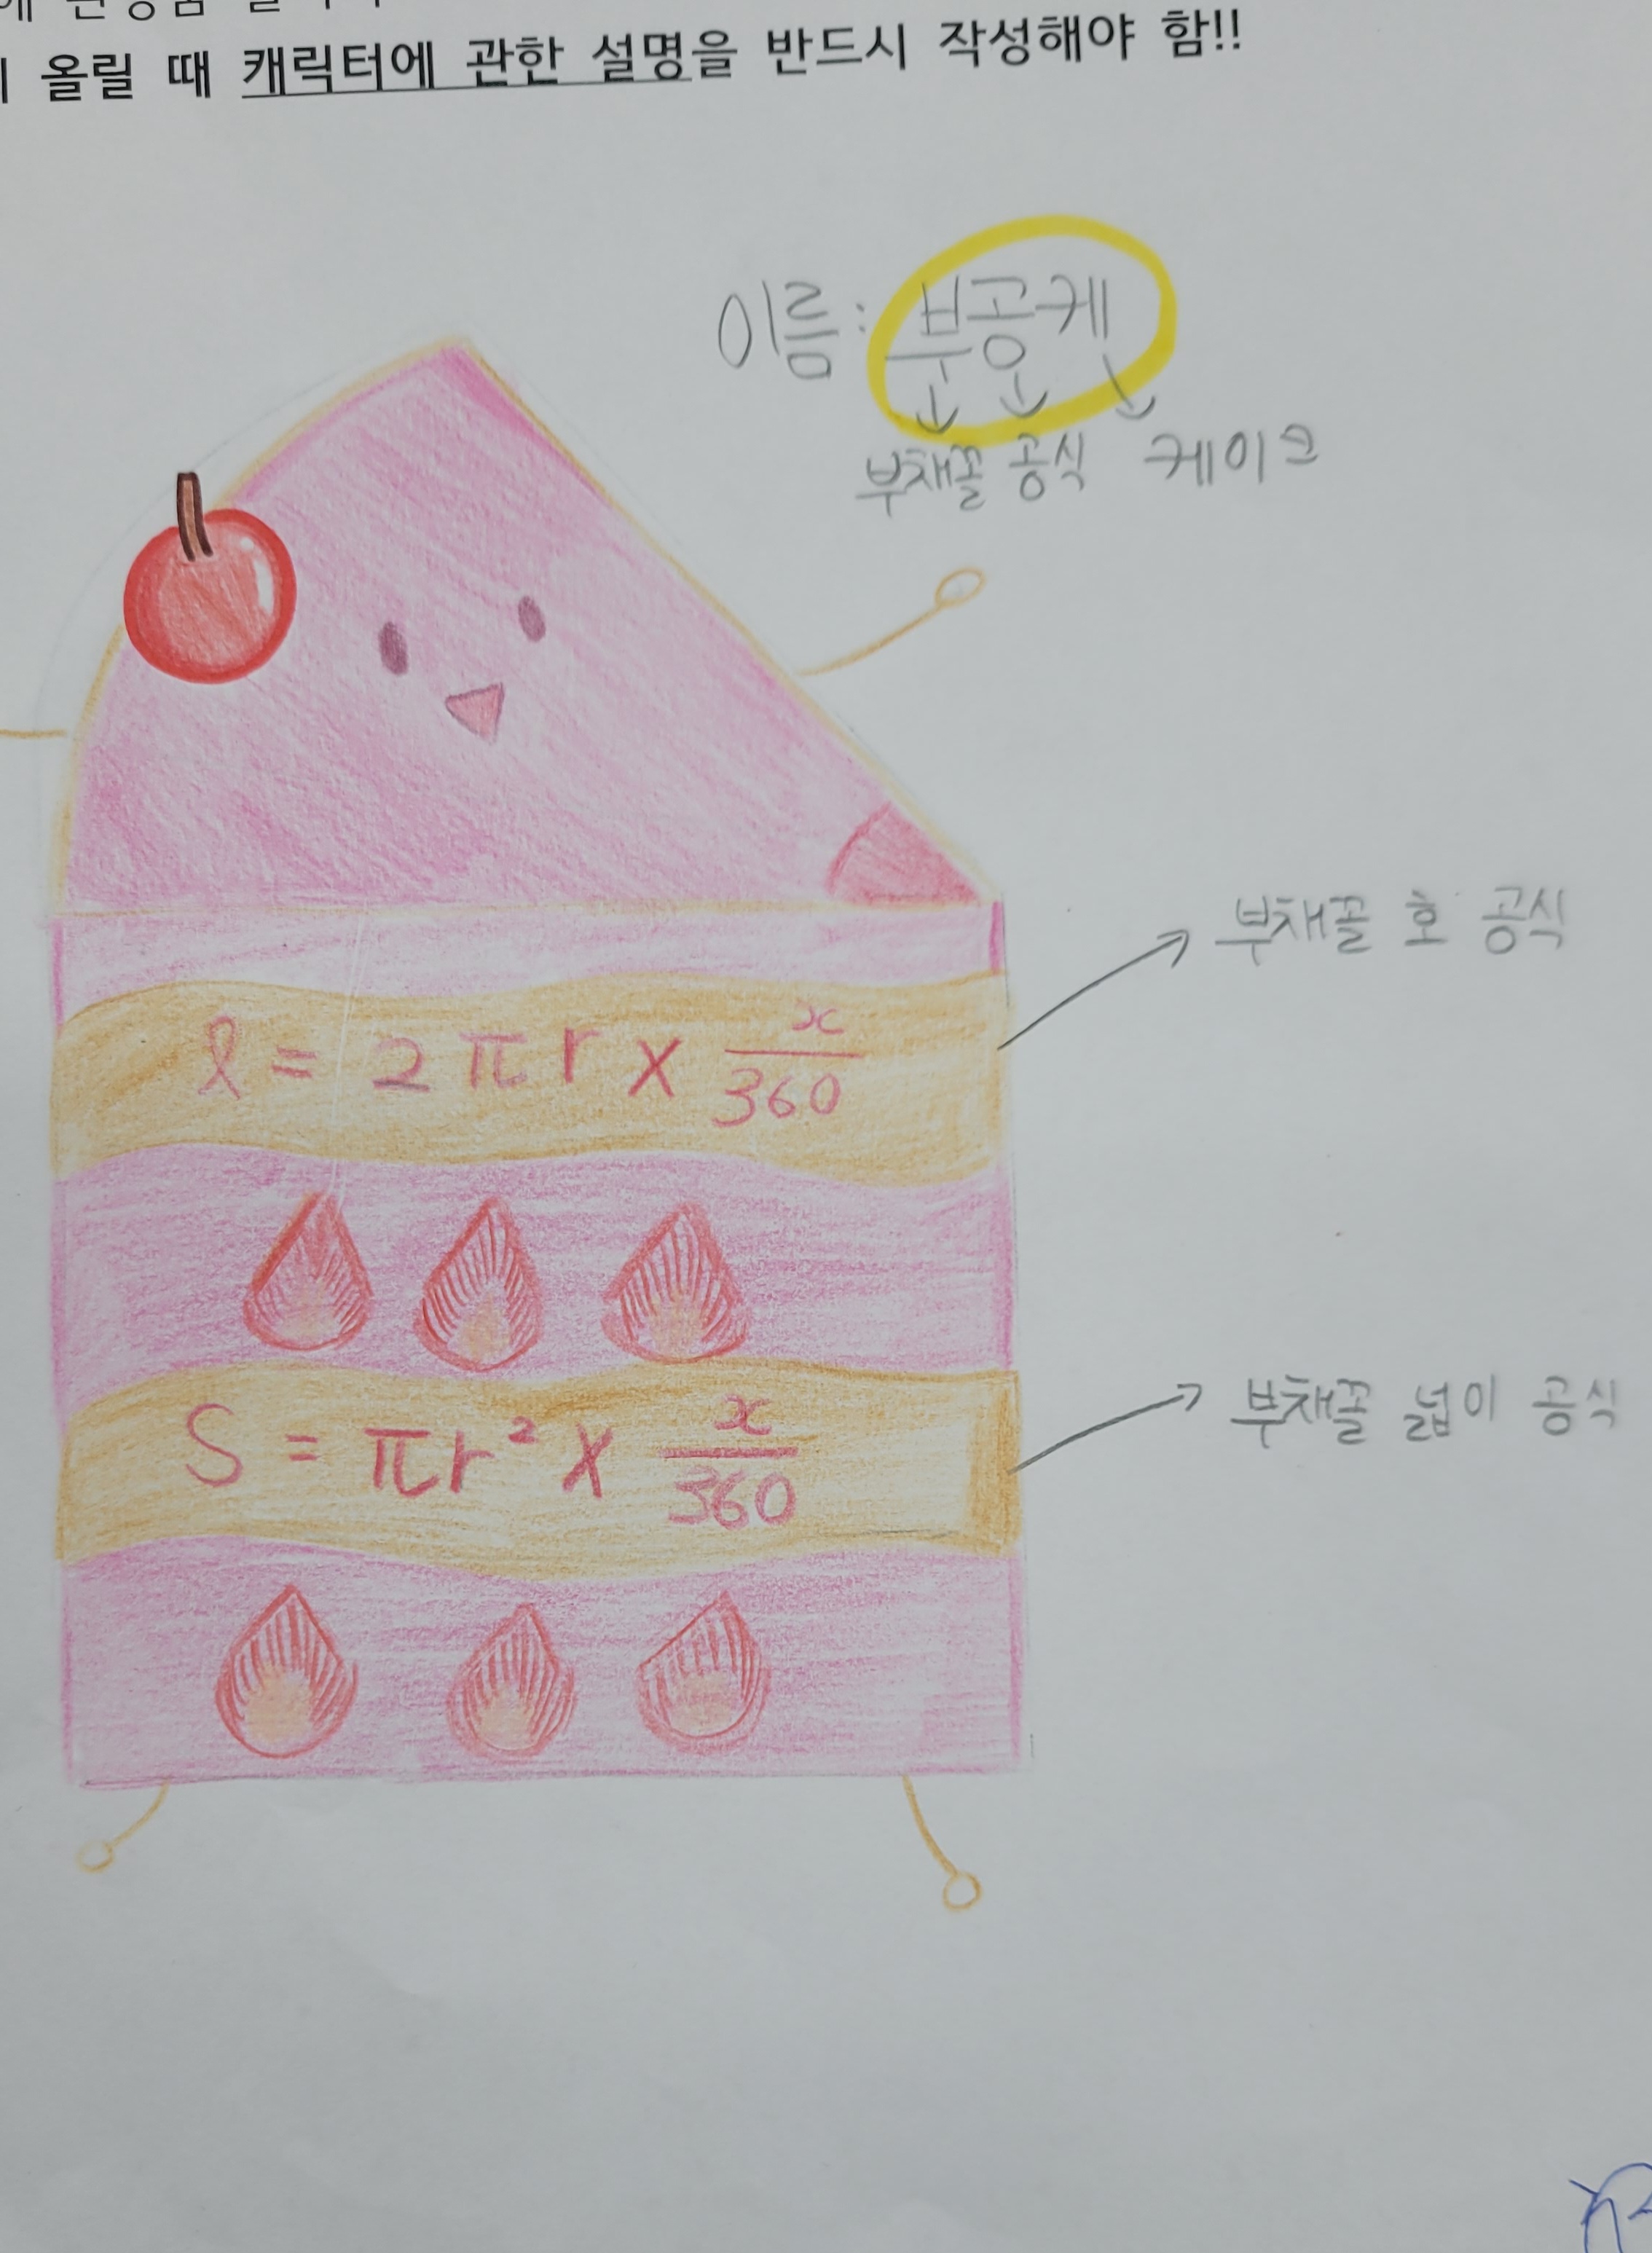 올릴 때 캐릭터에 관한 설명을 반드시 작성해야 함!!
이름: 부공케
부채꼴 공식 케이크
부채꼴 호 공식
l = 2πr × x/360
부채꼴 넓이 공식
S = πr² × x/360